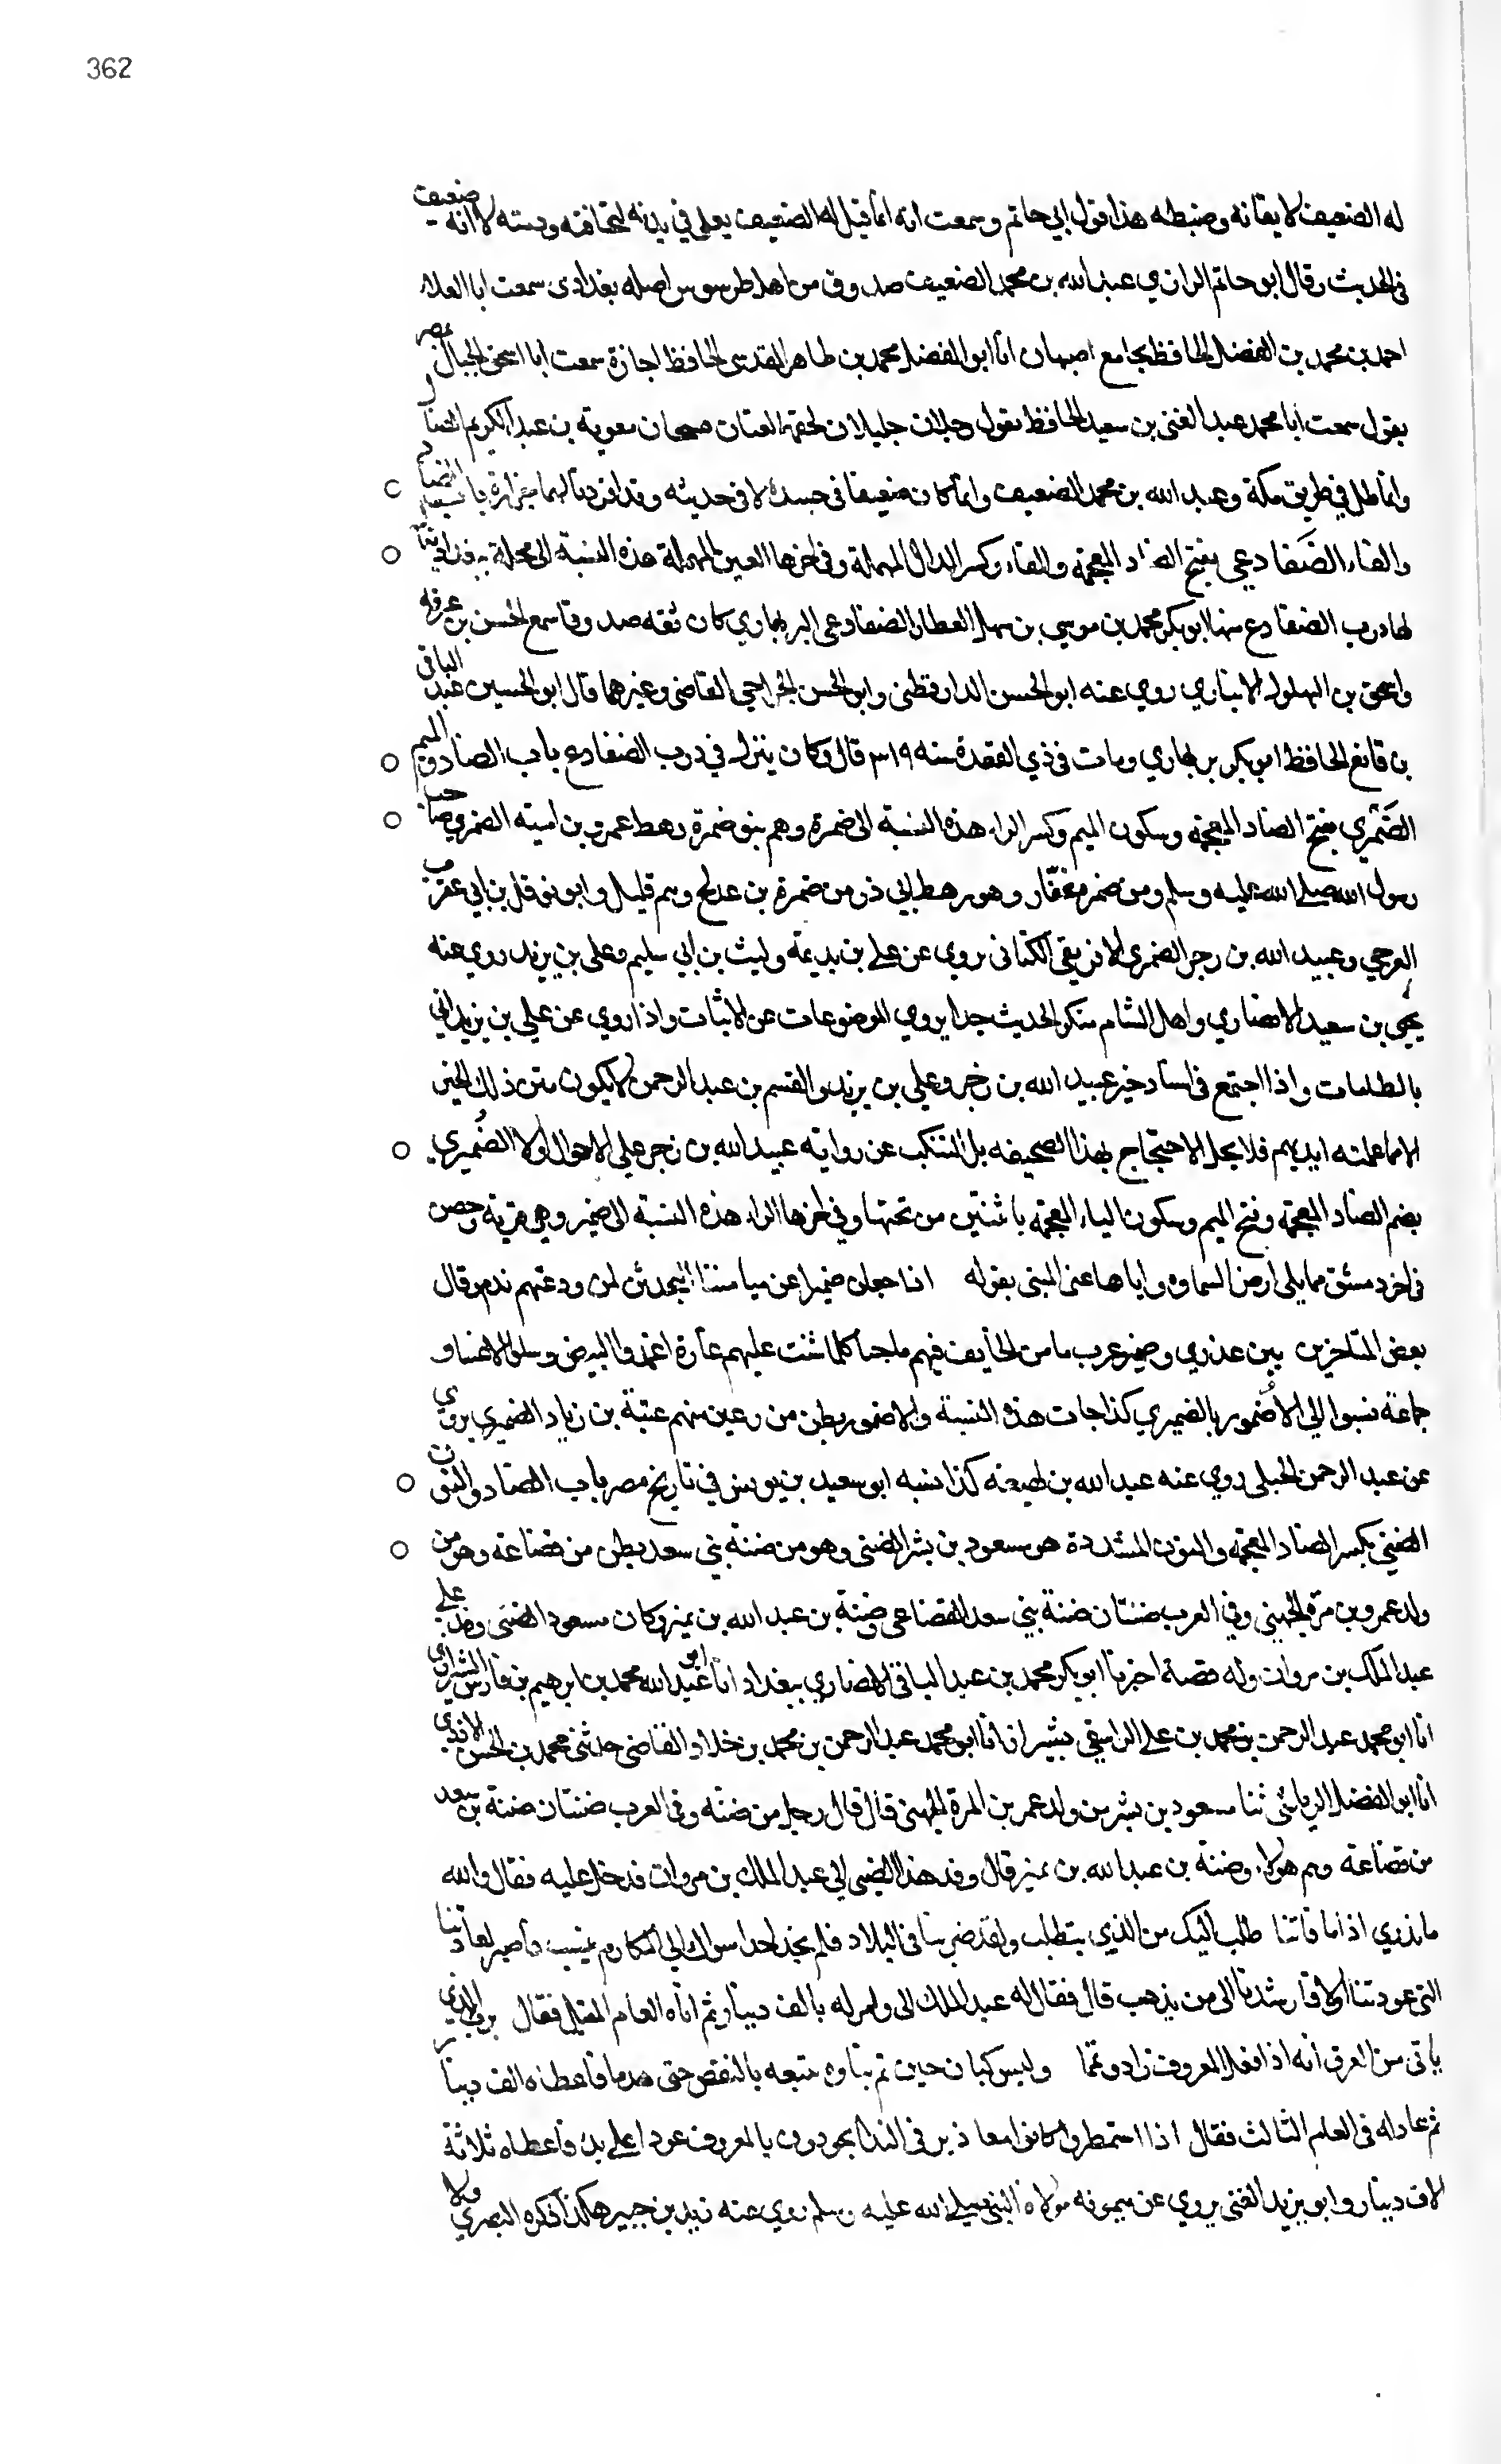 362
له الضعيف لايقانه وضبطه هذا قول ابي حاتم وسمعت انه انما قيل له الضعيف يعلى في بدنه لنحافته ودسته لا انه ضعيف
في الحديث وقال ابو حاتم الرازي عبد الله بن محمد الضعيف صدوق من اهل طرسوس اصله بغدادى سمعت ابا العلاء
احمد بن محمد بن الفضل الحافظ بجامع اصبهان انا ابو الفضل محمد بن طاهر المقدسي الحافظ اجازة سمعت ابا اسحق الحبال بمصر
يقول سمعت ابا محمد عبد الغنى بن سعيد الحافظ يقول رجلان جليلان لحقهما لقبان قبيحان معوية بن عبد الكريم الضال
وانما ضل في طريق مكة وعبد الله بن محمد الضعيف وانما كان ضعيفا في جسده لا في حديثه باب الضاد
والفاء الضَفادعي بفتح الضاد المعجمة والفاء وكسر الدال المهملة وفي اخرها العين المهملة هذه النسبة الى محلة ببغداد يقال
لها درب الضفادع منها ابو بكر محمد بن موسى بن سهل العطار الضفادعى البربهاري كان ثقه صدوقا سمع الحسن بن عرفه
واسحق بن البهلول الانباري روي عنه ابو الحسن الدارقطنى وابو الحسن الجراحي القاضى وغيرهما قال ابو الحسين عبد الباقي
بن قانع الحافظ ابو بكر بربهاري ومات في ذي القعدة سنه ٣١٩ قال وكان ينزل في درب الضفادع باب الضاد والميم
الضَمْري بفتح الضاد المعجمة وسكون الميم وكسر الراء هذه النسبة الى ضمرة وهم بنو ضمرة رهط عمرو بن امية الضمري صاحب
رسول الله صلى الله عليه وسلم ومن ضمرة غفار وهو رهط ابي ذر من ضمرة بن وهم قليل وابو نوفل بن ابي عقرب
العرجي وعبيد الله بن زحر الضمري الافريقى الكنانى يروي عن علي بن بذيمة وليث بن ابي سليم وعلى بن يزيد روي عنه
يحيى بن سعيد الانصاري واهل الشام منكر الحديث جدا يروي الموضوعات عن الاثبات واذا روي عن علي بن يزيد اتي
بالطامات واذا اجتمع في اسناد خبر عبيد الله بن زحر وعلي بن يزيد والقسم بن عبد الرحمن لا يكون متن ذلك الخبر
الا مما عملته ايديهم فلا يحل الاحتجاج بهذا الصحيفه بل التنكب عن رواية عبيد الله بن زحر علي الاحوال اولا الضُميري
بضم الضاد المعجمة وفتح الميم وسكون الياء المعجمة باثنتين من تحتها وفي اخرها الراء هذه النسبة الى ضمير وهي قرية وحصن
في اخر دمشق مما يلي ارض السماوه واياها عنى المتنبي بقوله انا جعلن ضميرا عن ميامننا ليحدثن لمن ودعتهم ندم وقال
بعض المتاخرين بين عذري وضمير عرب ما من الخايف فيهم ملجا كلما شنت عليهم غارة اغمدوا البيض وسلوا الاعينا و
جماعة نسبوا الي الاضمور بالضميري كذا جات هذه النسبة والاضمور بطن من رعين منهم عتبة بن زياد الضميري يروي
عن عبد الرحمن الحبلى روي عنه عبد الله بن لهيعة كذا نسبه ابو سعيد بن يونس في تاريخ مصر باب الضاد والنون
الضني بكسر الضاد المعجمة والنون المشددة هو مسعود بن بشر الضنى وهو من ضنه بني سعد بطن من قضاعة وهو من
ولد عمرو بن مرة الجهني وفي العرب ضنتان ضنة بني سعد القضاعى وضنة بن عبد الله بن نمير وكان مسعود الضنى وفد على
عبد الملك بن مروان وله قصة اخبرنا ابو بكر محمد بن عبد الباقي الانصاري ببغداد انا ابو عبد الله محمد بن ابرهيم بن فارس الشيرازي
انا ابو محمد عبد الرحمن بن محمد بن علي الراسبي بشيراز انا ابو محمد عبد الرحمن بن محمد بن خلاد القاضى حدثنى محمد بن الحسن الازدي
انا ابو الفضل الرياشى ثنا مسعود بن بشر من ولد عمر بن المرة الجهني قال قال رجل من ضنه وفى العرب ضنتان ضنة بن سعد
من قضاعة وهم هولاء وضنة بن عبد الله بن نمير قال وفد هذا الضبي الي عبد الملك بن مروان فدخل عليه فقال والله
ما ندري اذا ما فاتنا طلب اليك من الذي يتطلب ولقد ضربنا في البلاد فلم نجد احدا سواك الى المكارم ينسب فاصبر لعادتنا
التي عودتنا اولا فارشدنا الى من نذهب قال فقال له عبد الملك الى وامر له بالف دينار ثم اتاه العام المقبل فقال
ياتي من العرف انه اذا فعل المعروف زاد وتمما وليس كبان حين تم بناوه تتبعه بالنقض حتى تهدما فاعطاه الف دينار
ثم عاد له في العام الثالث فقال اذا استمطروا كانوا مغازير فى الندا يجودون بالمعروف عودا على بدء فاعطاه ثلاثة
الاف دينار وابو يزيد الضنى يروي عن ميمونه مولاة النبي صلى الله عليه وسلم روي عنه زيد بن جبير هكذا ذكره البصري ولا